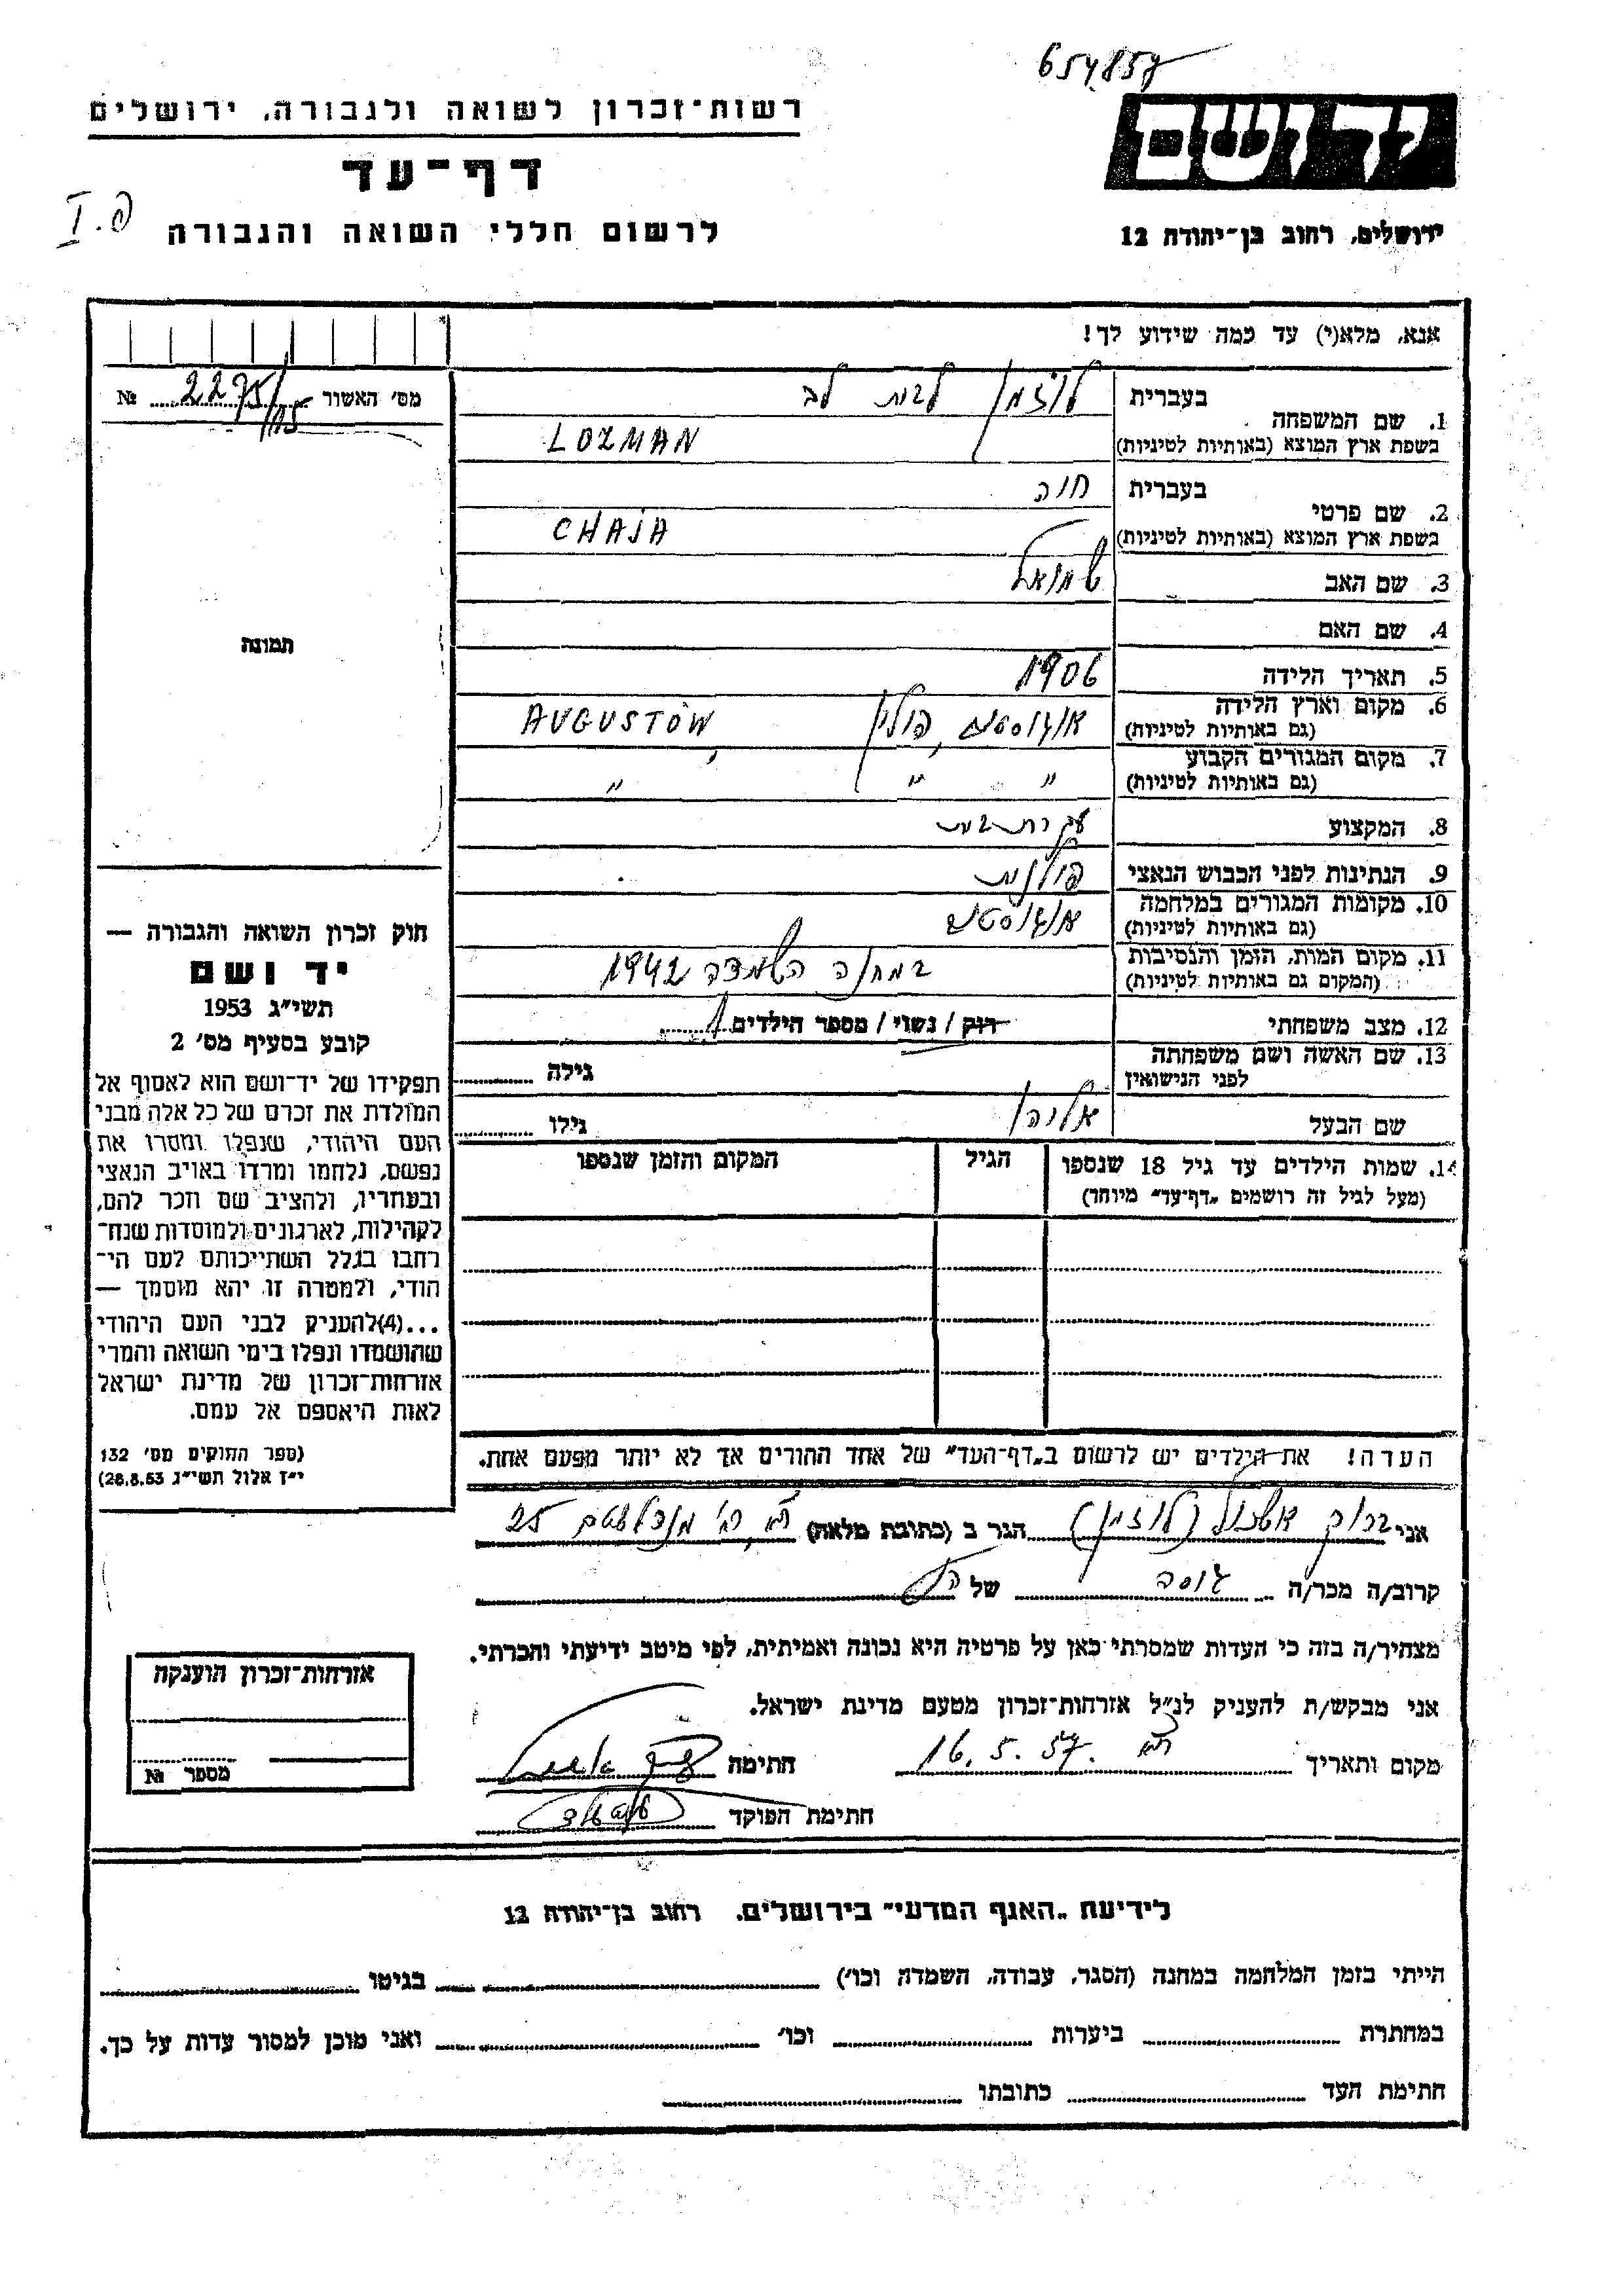 654857
רשות־זכרון לשואה ולגבורה, ירושלים
דף־עד
לרשום חללי השואה והגבורה
I.פ
יד ושם
ירושלים, רחוב בן־יהודה 12
אנא, מלא(י) עד כמה שידוע לך!
מס׳ האשור 2275/115 №
תמונה
1. שם המשפחה בעברית לוזמן לבית לב
בשפת ארץ המוצא (באותיות לטיניות) LOZMAN
2. שם פרטי בעברית חיה
בשפת ארץ המוצא (באותיות לטיניות) CHAJA
3. שם האב שמואל
4. שם האם
5. תאריך הלידה 1906
6. מקום וארץ הלידה אוגוסטוב, פולין AUGUSTÓW,
(גם באותיות לטיניות)
7. מקום המגורים הקבוע
(גם באותיות לטיניות) " " "
8. המקצוע עקרת בית
9. הנתינות לפני הכבוש הנאצי פולנית
10. מקומות המגורים במלחמה אוגוסטוב
(גם באותיות לטיניות)
11. מקום המות, הזמן והנסיבות במחנה השמדה 1942
(המקום גם באותיות לטיניות)
12. מצב משפחתי רוק / נשוי / מספר הילדים 1
13. שם האשה ושם משפחתה
לפני הנישואין גילה
שם הבעל אליהו גילו
14. שמות הילדים עד גיל 18 שנספו הגיל המקום והזמן שנספו
(מעל לגיל זה רושמים „דף־עד״ מיוחד)
הערה! את הילדים יש לרשום ב„דף־העד״ של אחד ההורים אך לא יותר מפעם אחת.
חוק זכרון השואה והגבורה —
יד ושם
תשי״ג 1953
קובע בסעיף מס׳ 2
תפקידו של יד־ושם הוא לאסוף אל
המולדת את זכרם של כל אלה מבני
העם היהודי, שנפלו ומסרו את
נפשם, נלחמו ומרדו באויב הנאצי
ובעוזריו, ולהציב שם וזכר להם,
לקהילות, לארגונים ולמוסדות שנח־
רבו בגלל השתייכותם לעם הי־
הודי, ולמטרה זו יהא מוסמך —
...(4)להעניק לבני העם היהודי
שהושמדו ונפלו בימי השואה והמרי
אזרחות־זכרון של מדינת ישראל
לאות היאספם אל עמם.
(ספר החוקים מס׳ 132
י״ז אלול תשי״ג 28.8.53)
אני ברוך אשכול (לוזמן) הגר ב (כתובת מלאה) ת״א, רח׳ 25
קרוב/ה מכר/ה גיסה של הנ״ל
מצהיר/ה בזה כי העדות שמסרתי כאן על פרטיה היא נכונה ואמיתית, לפי מיטב ידיעתי והכרתי.
אני מבקש/ת להעניק לנ״ל אזרחות־זכרון מטעם מדינת ישראל.
מקום ותאריך ת״א 16.5.57 חתימה
חתימת הפוקד
אזרחות־זכרון הוענקה
מספר №
לידיעת „האגף המדעי״ בירושלים, רחוב בן־יהודה 12
הייתי בזמן המלחמה במחנה (הסגר, עבודה, השמדה וכו׳) בגיטו
במחתרת ביערות וכו׳ ואני מוכן למסור עדות על כך.
חתימת העד כתובתו